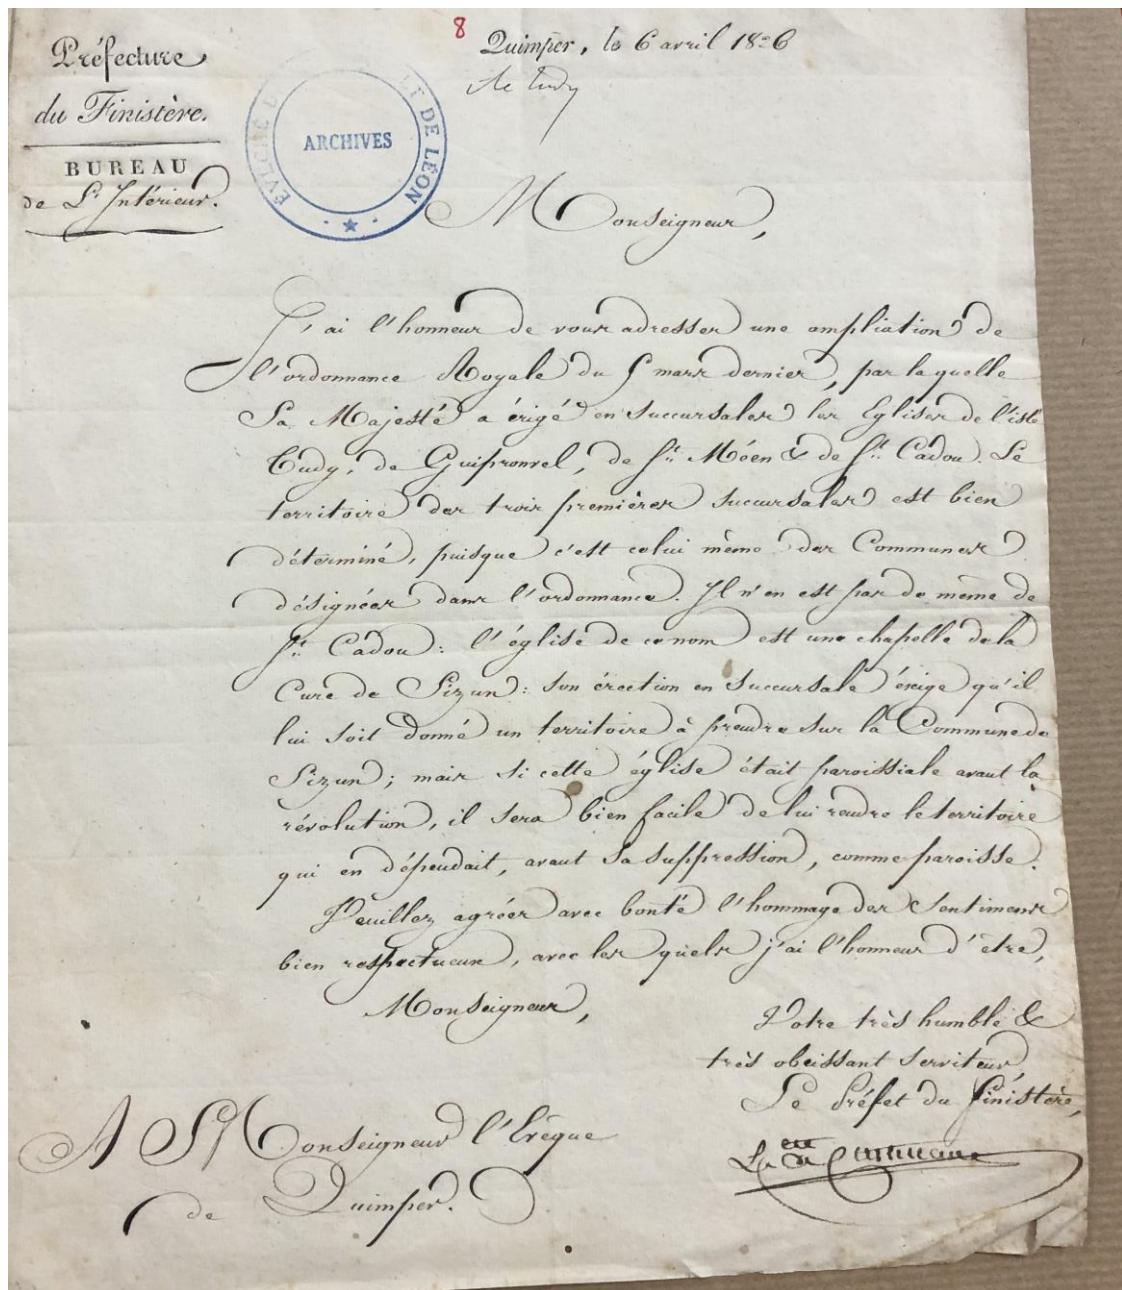 8
Préfecture
du Finistère.
BUREAU
de L'Intérieur.
Quimper, le 6 avril 1826
ile tudy
ARCHIVES
DE LÉON
Monseigneur,
J'ai l'honneur de vous adresser une ampliation de
l'ordonnance Royale du 5 mars dernier, par la quelle
Sa Majesté a érigé en succursales les Eglises de l'isle
Tudy, de Guipronvel, de St. Méen & de St. Cadou. Le
territoire des trois premières succursales est bien
déterminé, puisque c'est celui même des Communes
désignées dans l'ordonnance. Il n'en est pas de même de
St. Cadou : l'église de ce nom est une chapelle de la
Cure de Sizun : son érection en succursale éxige qu'il
lui soit donné un territoire à prendre sur la Commune de
Sizun ; mais si cette église était paroissiale avant la
révolution, il sera bien facile de lui rendre le territoire
qui en dépendait, avant sa suppression, comme paroisse.
Veuillez agréer avec bonté l'hommage des Sentimens
bien respectueux, avec les quels j'ai l'honneur d'être,
Monseigneur,
Votre très humble &
très obeissant serviteur,
Le Préfet du Finistère,
A Monseigneur l'Evêque
de Quimper.